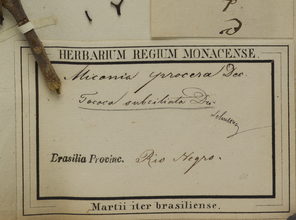 HERBARIUM REGIUM MONACENSE.
Miconia procera Dec.
Tococa subciliata DC.
Brasilia Provinc. Rio Negro.
Martii iter brasiliense.